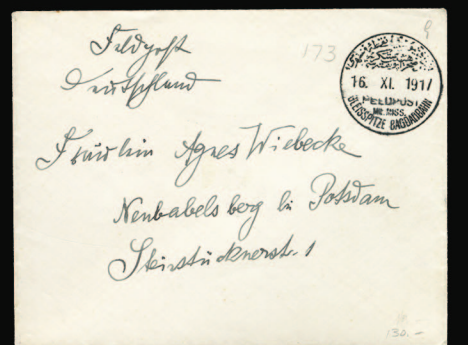 Feldpost
Deutschland
173
16. XI. 1917
FELDPOST
MIL. MISS.
GLEISSPITZE BAGDADBAHN
Fräulein Agnes Wiebecke
Neubabelsberg bei Potsdam
Steinstücknerstr. 1
130.-